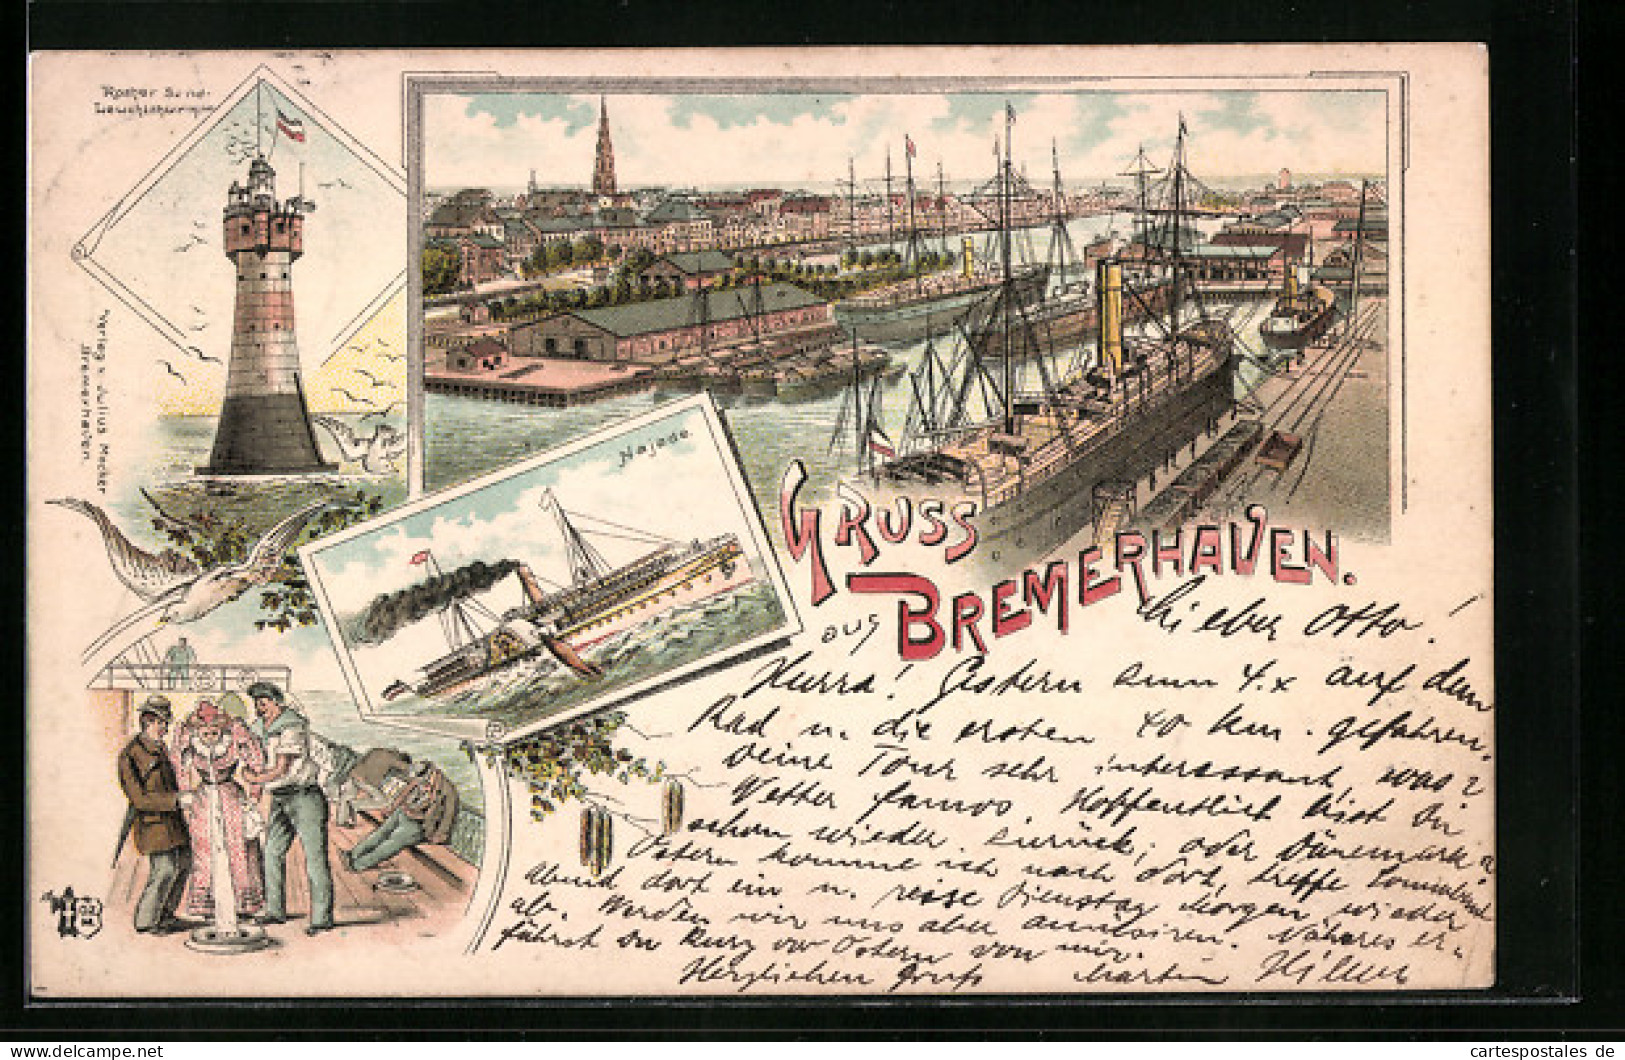 Rother Sand-
Leuchtthurm
Verlag v. Julius Mocker
Bremerhaven.
Najade.
GRUSS
aus BREMERHAVEN.
Lieber Otto!
Hurra! Gestern zum 4. x auf dem
Rad u. die ersten 40 km. gefahren.
Deine Tour sehr interessant, was?
Wetter famos. Hoffentlich bist Du
schon wieder zurück, oder Dänemark?
Ostern komme ich nach Dort, treffe Sonnabend
Abend dort ein u. reise Dienstag Morgen wieder
ab. Werden wir uns aber amüsiren. Näheres er-
fährst Du kurz vor Ostern von mir.
Herzlichen Gruß Martin
cartespostales de